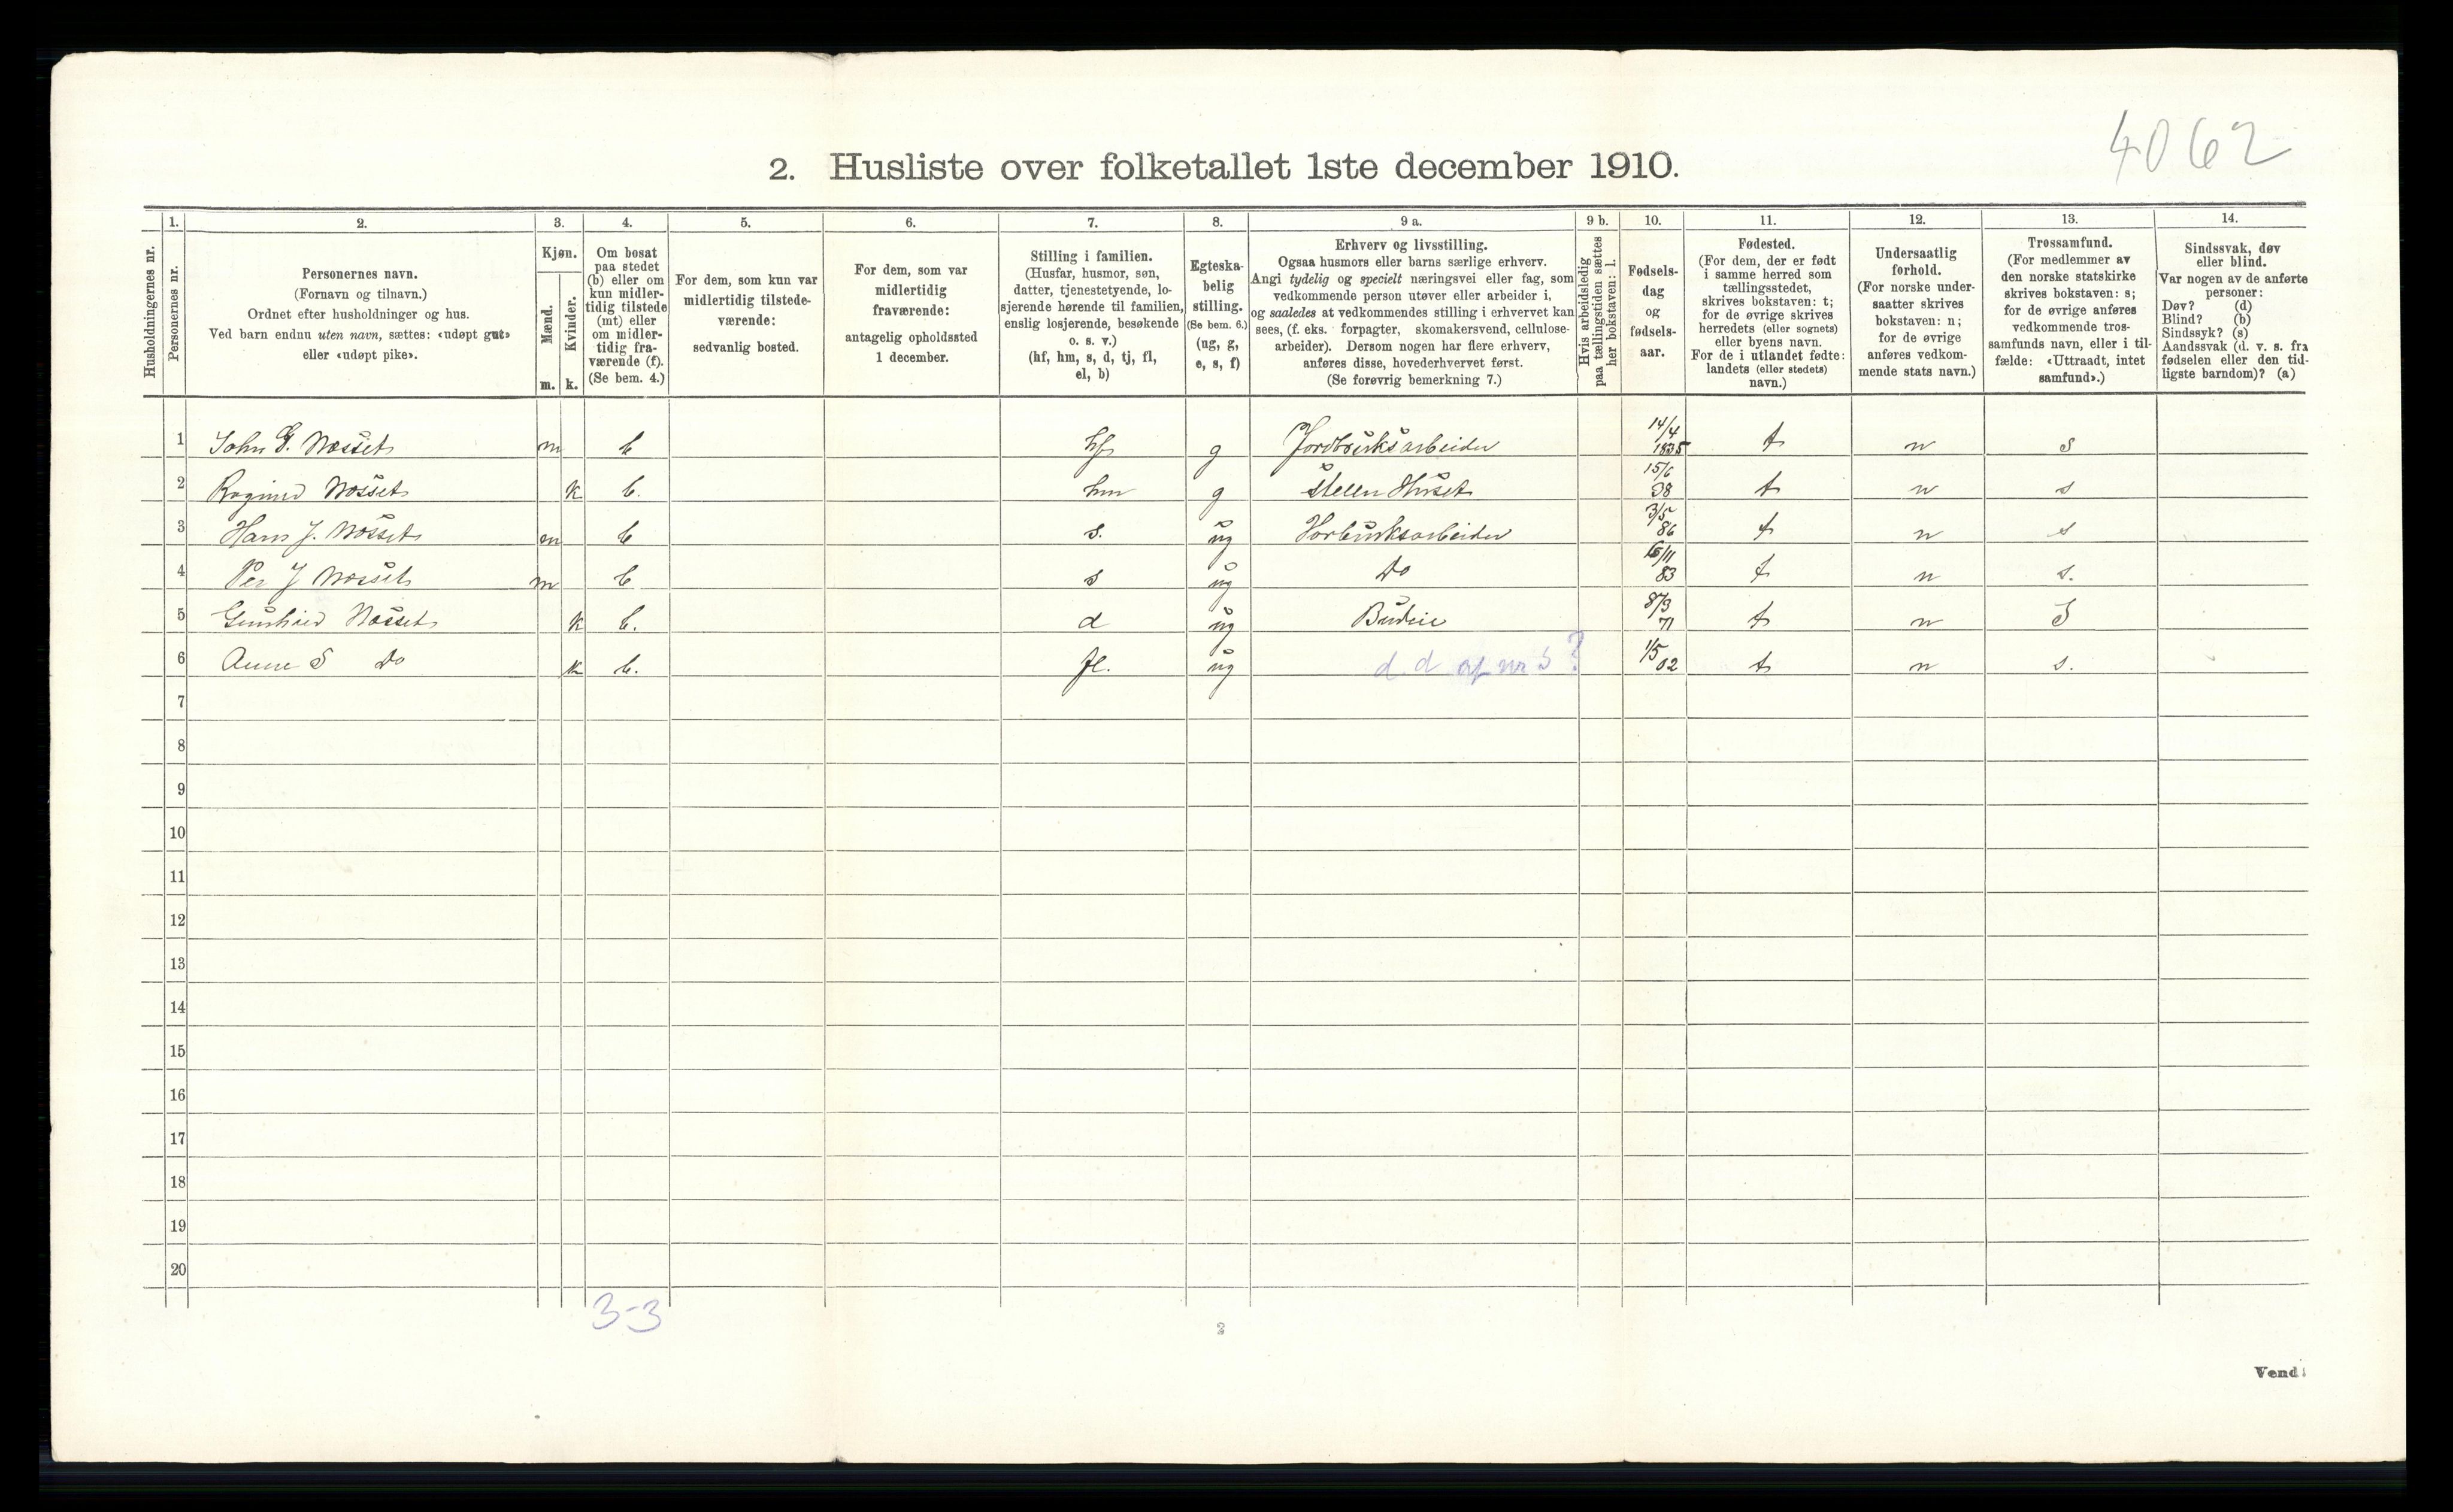 4062
2. Husliste over folketallet 1ste december 1910.
Husholdningernes nr.
1.
Personernes nr.
2.
Personernes navn.
(Fornavn og tilnavn.)
Ordnet efter husholdninger og hus.
Ved barn endnu uten navn, sættes: «udøpt gut»
eller «udøpt pike».
3.
Kjøn.
Mænd.
m.
Kvinder.
k.
4.
Om bosat
paa stedet
(b) eller om
kun midler-
tidig tilstede
(mt) eller
om midler-
tidig fra-
værende (f).
(Se bem. 4.)
5.
For dem, som kun var
midlertidig tilstede-
værende:
sedvanlig bosted.
6.
For dem, som var
midlertidig
fraværende:
antagelig opholdssted
1 december.
7.
Stilling i familien.
(Husfar, husmor, søn,
datter, tjenestetyende, lo-
sjerende hørende til familien,
enslig losjerende, besøkende
o. s. v.)
(hf, hm, s, d, tj, fl,
el, b)
8.
Egteska-
belig
stilling.
(Se bem. 6.)
(ug, g,
e, s, f)
9 a.
Erhverv og livsstilling.
Ogsaa husmors eller barns særlige erhverv.
Angi tydelig og specielt næringsvei eller fag, som
vedkommende person utøver eller arbeider i,
og saaledes at vedkommendes stilling i erhvervet kan
sees, (f. eks. forpagter, skomakersvend, cellulose-
arbeider). Dersom nogen har flere erhverv,
anføres disse, hovederhvervet først.
(Se forøvrig bemerkning 7.)
9 b.
Hvis arbeidsledig
paa tællingstiden sættes
her bokstaven: l.
10.
Fødsels-
dag
og
fødsels-
aar.
11.
Fødested.
(For dem, der er født
i samme herred som
tællingsstedet,
skrives bokstaven: t;
for de øvrige skrives
herredets (eller sognets)
eller byens navn.
For de i utlandet fødte:
landets (eller stedets)
navn.)
12.
Undersaatlig
forhold.
(For norske under-
saatter skrives
bokstaven: n;
for de øvrige
anføres vedkom-
mende stats navn.)
13.
Trossamfund.
(For medlemmer av
den norske statskirke
skrives bokstaven: s;
for de øvrige anføres
vedkommende tros-
samfunds navn, eller i til-
fælde: «Uttraadt, intet
samfund».)
14.
Sindssvak, døv
eller blind.
Var nogen av de anførte
personer:
Døv? (d)
Blind? (b)
Sindssyk? (s)
Aandssvak (d. v. s. fra
fødselen eller den tid-
ligste barndom)? (a)
1 John G. Næsset m b hf g Jordbruksarbeider 14/4 1835 t n s
2 Næsset k b. hm g Steller Huset 15/6 38 t n s
3 Hans J. Næsset m b s. ug 3/5 86 t n s
4 Per J Næsset m b s ug Do /11 83 t n s.
5 Gunhild Næsset k b. d ug Budeie 8/3 71 t n S
6 Anne S Do k b. fl. ug d. d af nr 5? 1/5 02 t n s.
7
8
9
10
11
12
13
14
15
16
17
18
19
20
3-3
2
Vend!